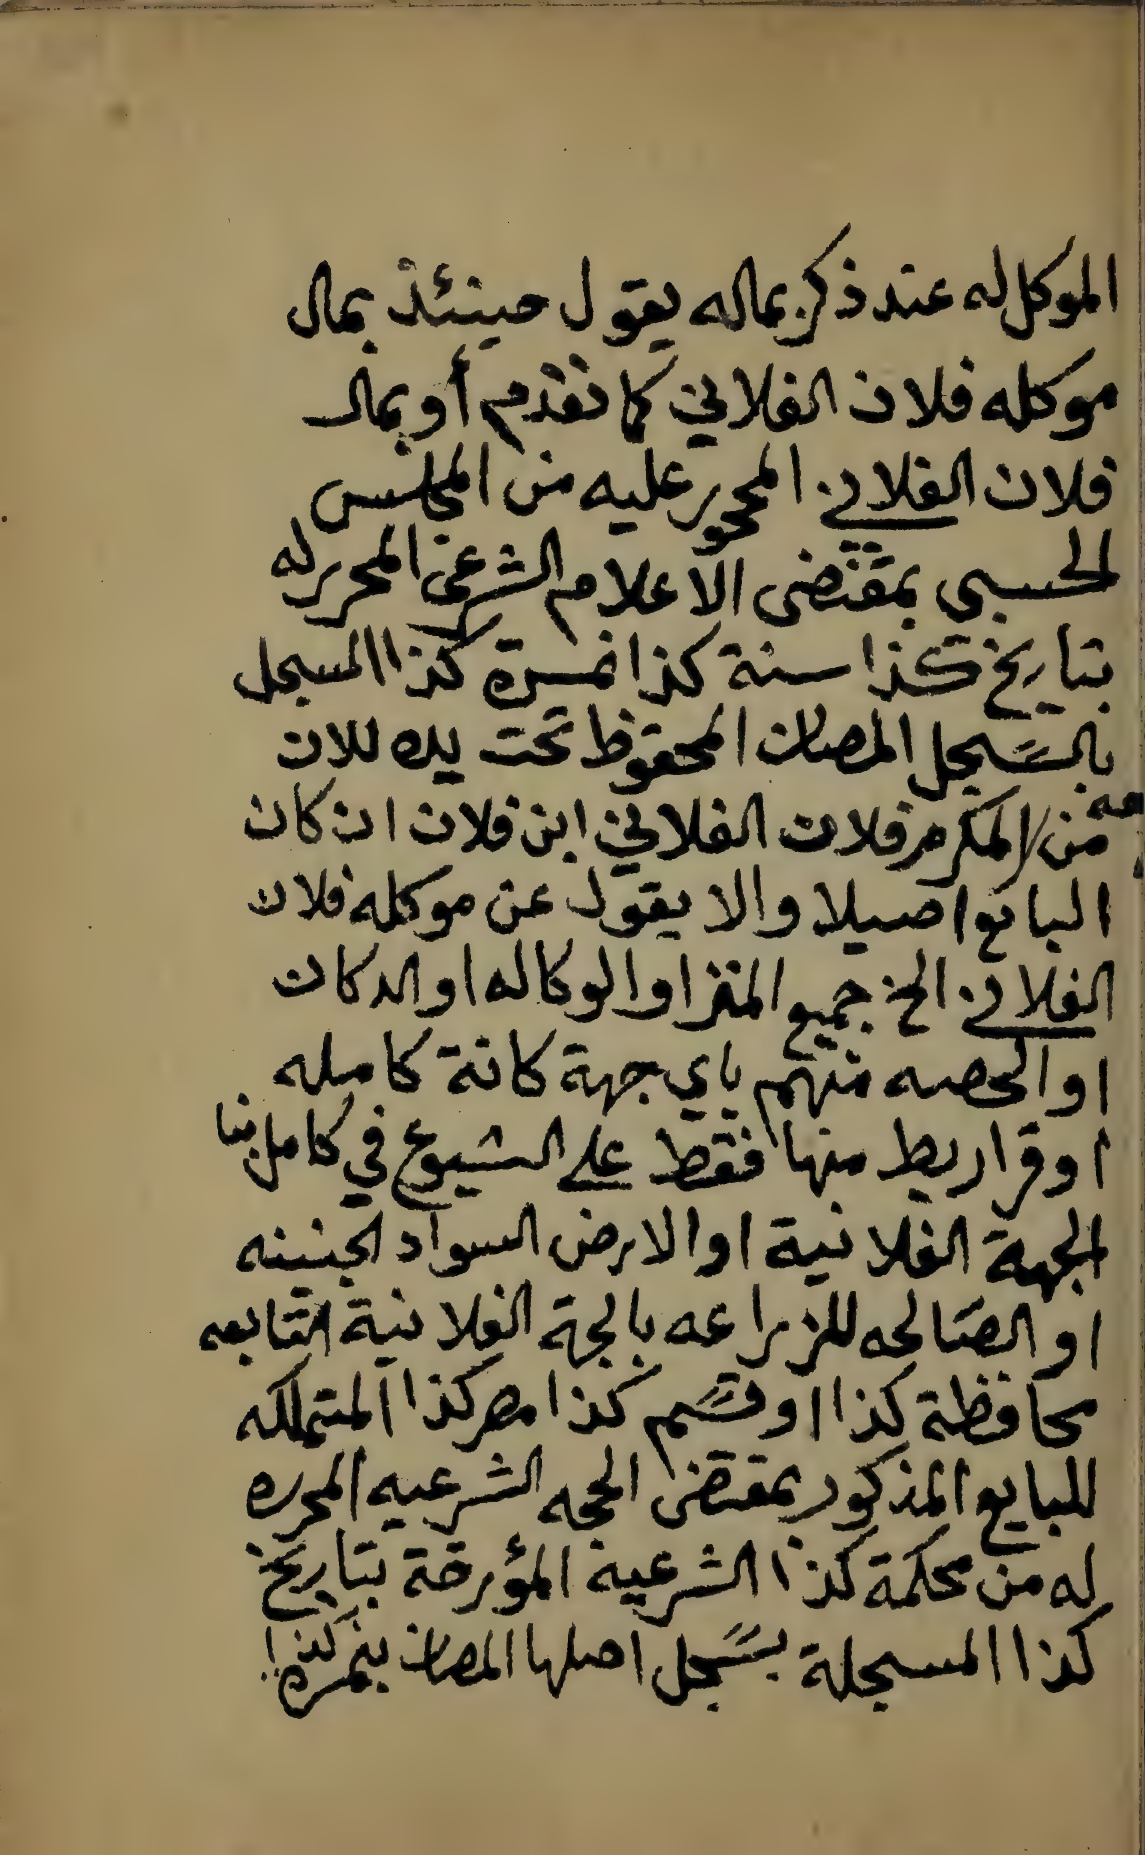 الموكل له عند ذكر بماله يقول حينئذ بمال
موكله فلان الفلاني كما تقدم أو بمال
فلان الفلاني المحجور عليه من المجلس
الحسبي بمقتضى الاعلام الشرعي المحرر له
بتاريخ كذا سنة كذا نمرة كذا المسجل
بالسجل المصان المحفوظ تحت يده للان
من المكرم فلان الفلاني ابن فلان ان كان
البايع اصيلا والا يقول عن موكله فلان
الفلاني الخ جميع المنزل او الوكاله او الدكان
او الحصه منهم باي جهة كانة كامله
او قراريط منها فقط على الشيوع في كامل بنا
الجهة الفلانية او الارض السواد الجنينه
او الصالحه للزراعه بالجهة الفلانية التابعه
محافظة كذا او قسم كذا مركز كذا المتملكه
للبايع المذكور بمقتضى الحجه الشرعيه المحرره
له من محكمة كذا الشرعية المؤرخة بتاريخ
كذا المسجلة بسجل اصلها المصان بنمرة كذا